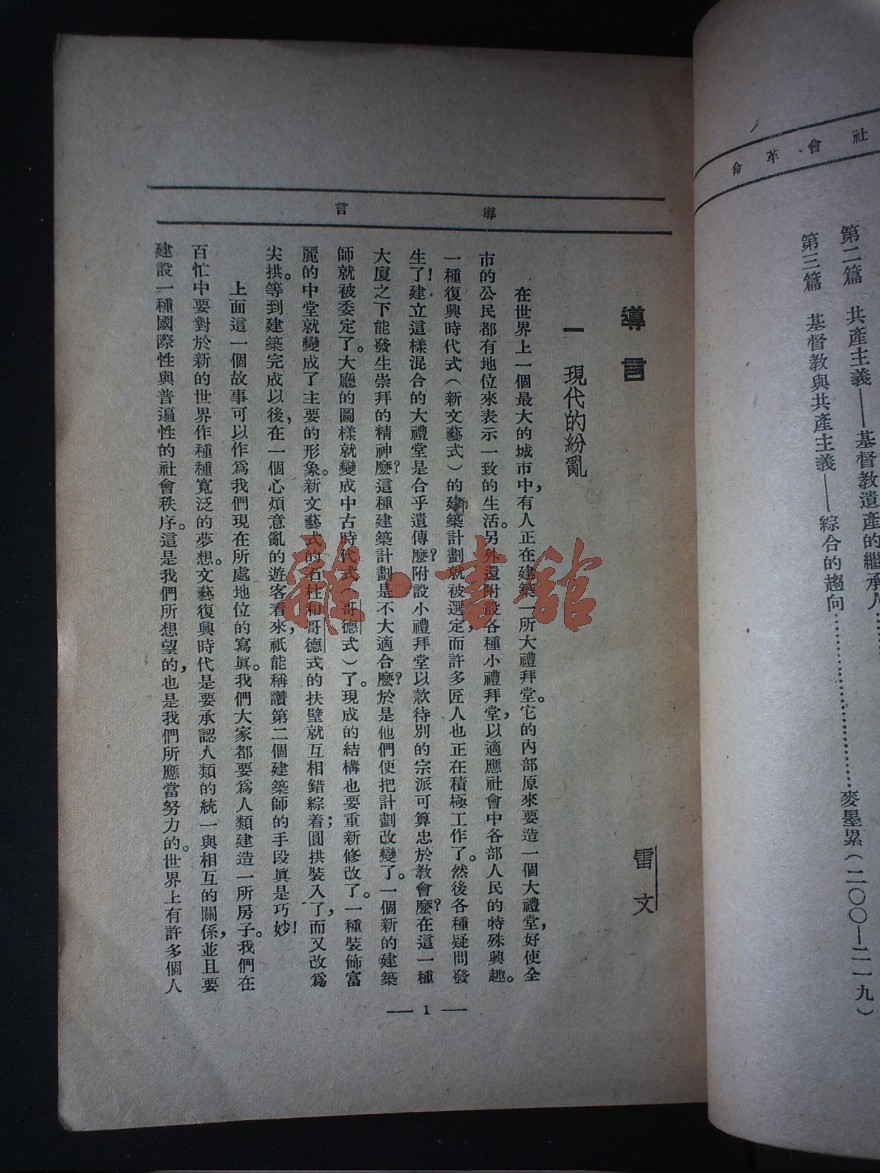 社會革命
第二篇 共產主義——基督教遺產的繼承人
第三篇 基督教與共產主義——綜合的趨向……………………麥墨累(二〇〇—二一九)
導言
導言
雷文
一 現代的紛亂
在世界上一個最大的城市中,有人正在建築一所大禮拜堂。它的內部原來要造一個大禮堂,好使全
市的公民都有地位來表示一致的生活。另外還附設各種小禮拜堂,以適應社會中各部人民的特殊興趣。
一種復興時代式(新文藝式)的建築計劃就被選定,而許多匠人也正在積極工作了。然後各種疑問發
生了!建立這樣混合的大禮堂是合乎遺傳麽?附設小禮拜堂以款待別的宗派可算忠於教會麽?在這一種
大廈之下能發生崇拜的精神麽?這種建築計劃是不大適合麽?於是他們便把計劃改變了。一個新的建築
師就被委定了。大廳的圖樣就變成中古時代式(哥德式)了。現成的結構也要重新修改了。一種裝飾富
麗的中堂就變成了主要的形象。新文藝式的石柱和哥德式的扶壁就互相錯綜着;圓拱裝入了,而又改爲
尖拱。等到建築完成以後,在一個心煩意亂的遊客看來,祇能稱讚第二個建築師的手段眞是巧妙!
上面這一個故事可以作爲我們現在所處地位的寫眞。我們大家都要爲人類建造一所房子。我們在
百忙中要對於新的世界作種種寬泛的夢想。文藝復興時代是要承認人類的統一與相互的關係,並且要
建設一種國際性與普遍性的社會秩序。這是我們所想望的,也是我們所應當努力的。世界上有許多個人
— 1 —
龍·書館